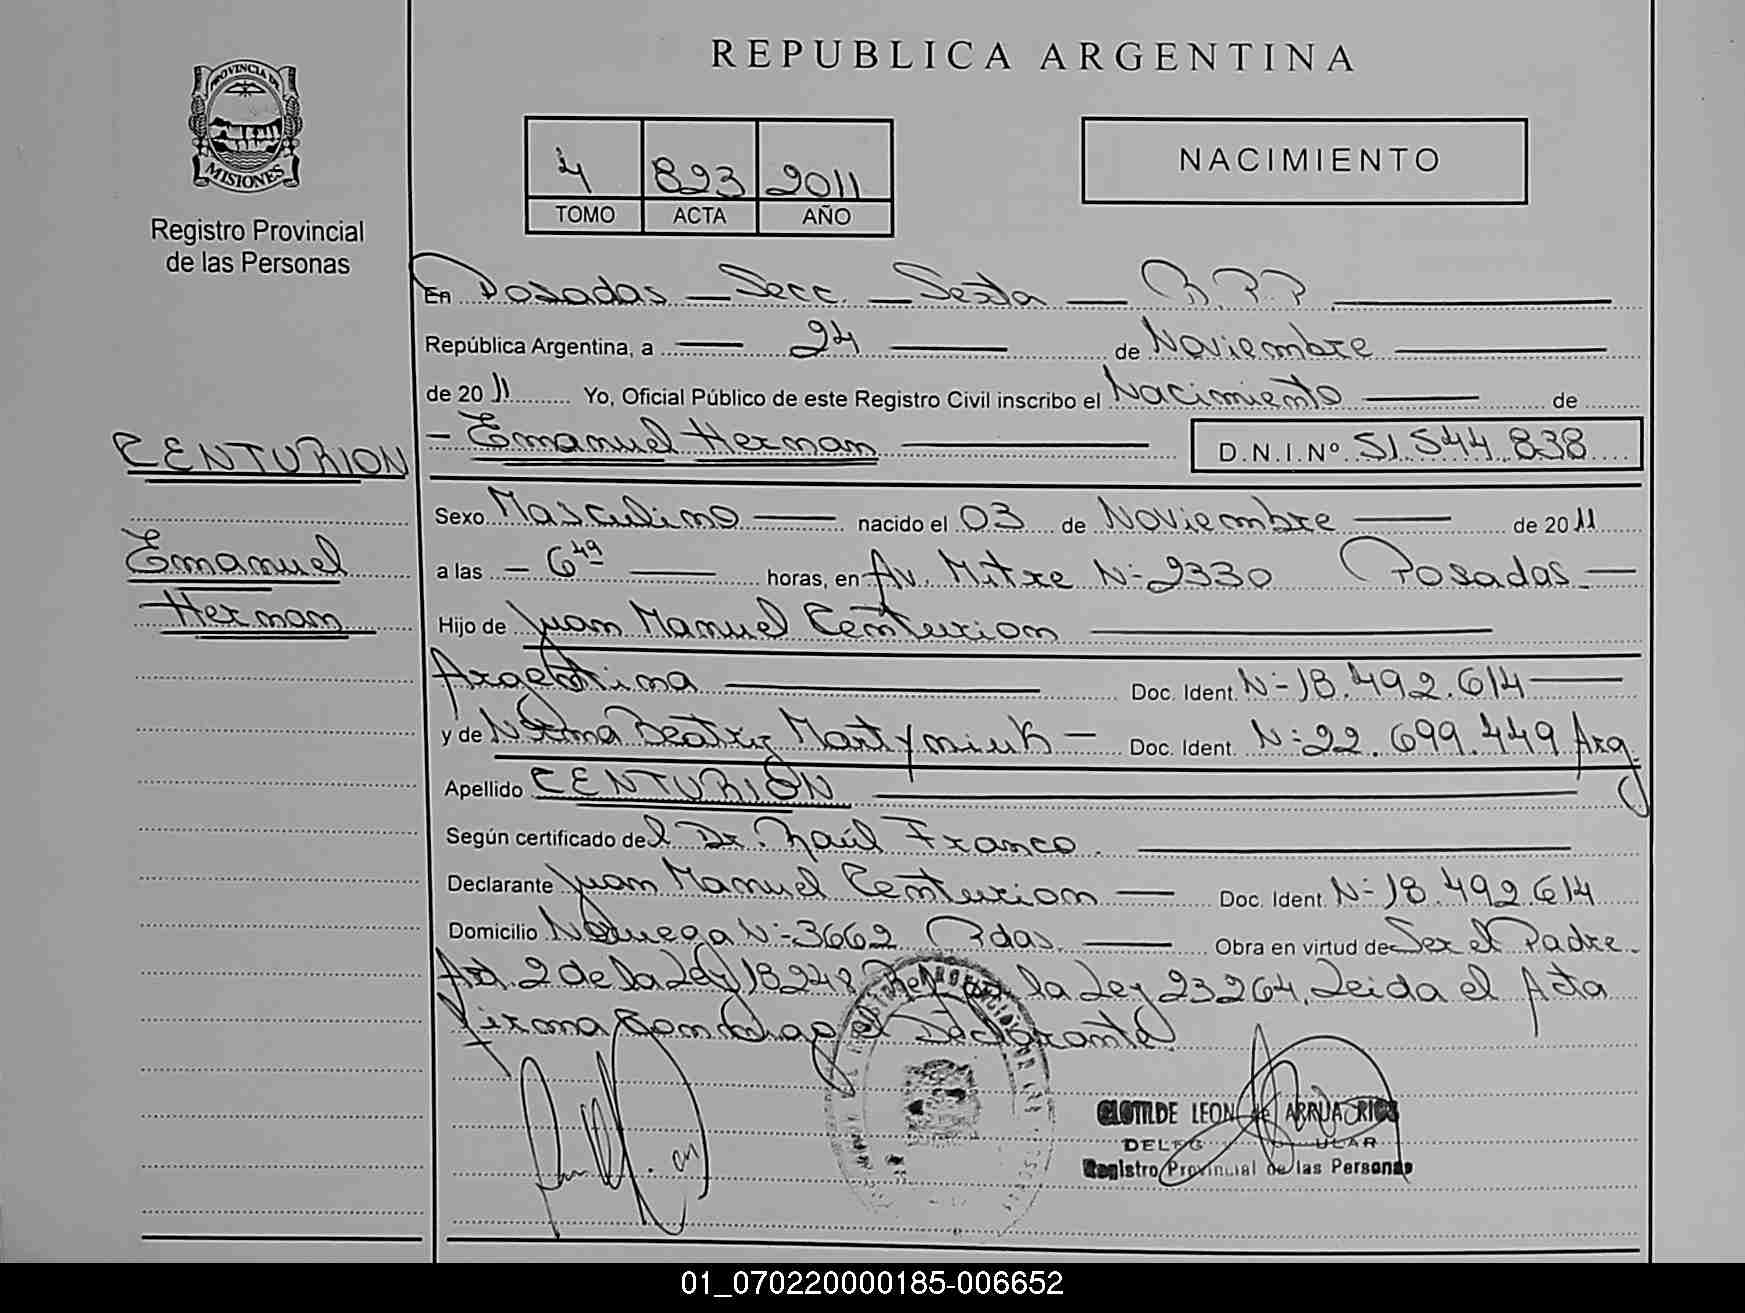 REPUBLICA ARGENTINA
PROVINCIA DE
MISIONES
Registro Provincial
de las Personas
4 823 2011
TOMO ACTA AÑO
NACIMIENTO
En Posadas — Secc. — Sexta — R.P.P.
República Argentina, a — 24 — de Noviembre
de 2011 Yo, Oficial Público de este Registro Civil inscribo el Nacimiento — de
— Emanuel Hernan — D.N.I.Nº 51.544.838
CENTURION
Emanuel
Hernan
Sexo Masculino — nacido el 03 de Noviembre — de 2011
a las — 6 49 — horas, en Av. Mitre N:2330 Posadas —
Hijo de Juan Manuel Centurion —
Argentina — Doc. Ident. N- 18.492.614 —
y de Norma Beatriz Martyniuk — Doc. Ident. N:22.699.449 Arg.
Apellido CENTURION —
Según certificado del Dr. Raúl Franco. —
Declarante Juan Manuel Centurion — Doc. Ident. N- 18.492.614
Domicilio Noruega N:-3662 Pdas. — Obra en virtud de Ser el Padre.
Art. 2 de la Ley 18248 la Ley 23264. Leida el Acta
firma Conmigo el Declarante.
CLOTILDE LEON de ARRUA RIOS
Registro Provincial de las Personas
01_070220000185-006652